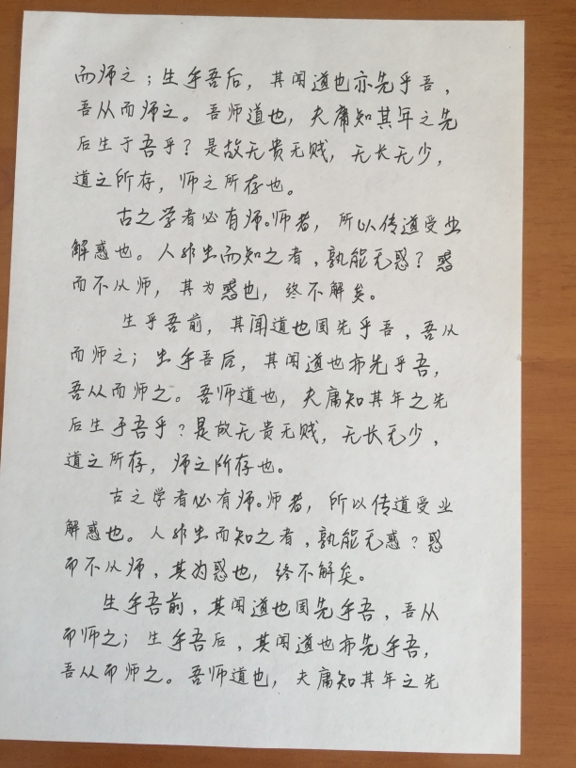 而师之；生乎吾后，其闻道也亦先乎吾，
吾从而师之。吾师道也，夫庸知其年之先
后生于吾乎？是故无贵无贱，无长无少，
道之所存，师之所存也。
古之学者必有师。师者，所以传道受业
解惑也。人非生而知之者，孰能无惑？惑
而不从师，其为惑也，终不解矣。
生乎吾前，其闻道也固先乎吾，吾从
而师之；生乎吾后，其闻道也亦先乎吾，
吾从而师之。吾师道也，夫庸知其年之先
后生于吾乎？是故无贵无贱，无长无少，
道之所存，师之所存也。
古之学者必有师。师者，所以传道受业
解惑也。人非生而知之者，孰能无惑？惑
而不从师，其为惑也，终不解矣。
生乎吾前，其闻道也固先乎吾，吾从
而师之；生乎吾后，其闻道也亦先乎吾，
吾从而师之。吾师道也，夫庸知其年之先